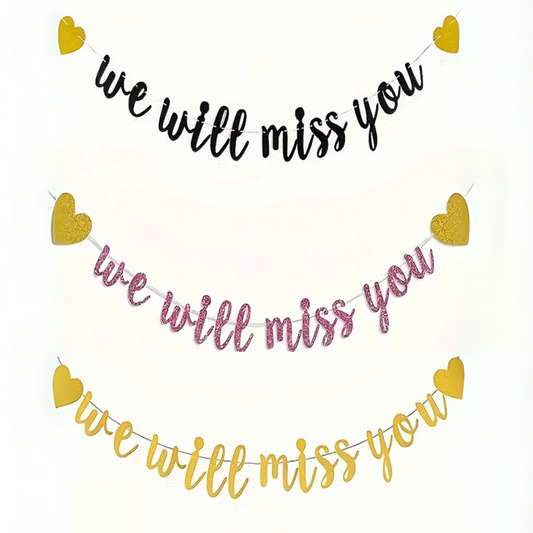 we will miss you
we will miss you
we will miss you